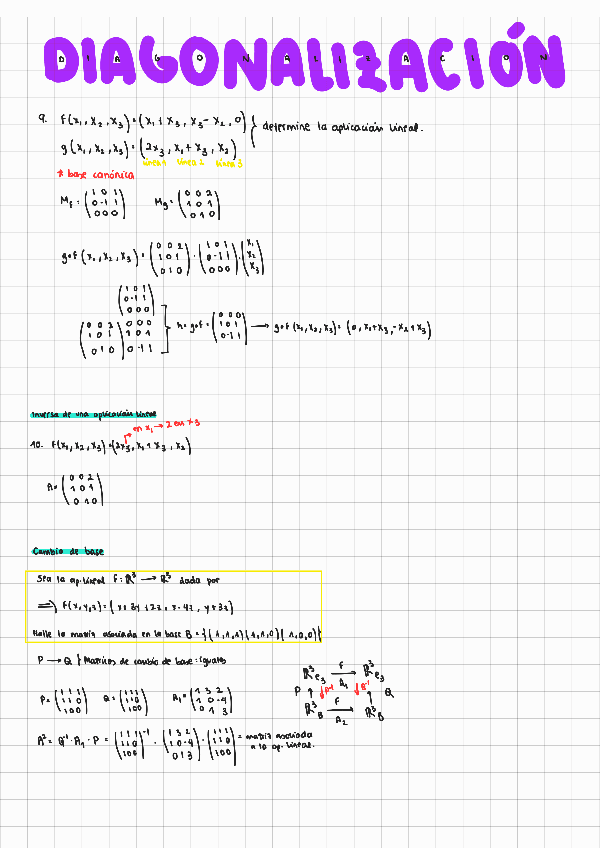 DIAGONALIZACIÓN
9. f(x₁, x₂, x₃) = (x₁ + x₃, x₃ - x₂, 0) } determine la aplicación lineal.
g(x₁, x₂, x₃) = (2x₃, x₁ + x₃, x₂)
línea 1 línea 2 línea 3
* base canónica
M_f = (1 0 1 / 0 -1 1 / 0 0 0) M_g = (0 0 2 / 1 0 1 / 0 1 0)
g∘f (x₁, x₂, x₃) = (0 0 2 / 1 0 1 / 0 1 0) · (1 0 1 / 0 -1 1 / 0 0 0) · (x₁ / x₂ / x₃)
(1 0 1 / 0 -1 1 / 0 0 0)
(0 0 2 / 1 0 1 / 0 1 0) 0 0 0 / 1 0 1 / 0 -1 1 ] h = g∘f = (0 0 0 / 1 0 1 / 0 -1 1) → g∘f (x₁, x₂, x₃) = (0, x₁ + x₃, -x₂ + x₃)
Inversa de una aplicación lineal
en x₁ → 2 en x₃
10. f(x₁, x₂, x₃) = (2x₃, x₁ + x₃, x₂)
A = (0 0 2 / 1 0 1 / 0 1 0)
Cambio de base
Sea la ap. lineal f: ℝ³ → ℝ³ dada por
⇒ f(x, y, z) = (x + 3y + 2z, x - 4z, y + 3z)
Halle la matriz asociada en la base B = {(1,1,1)(1,1,0)(1,0,0)}
P → Q } Matrices de cambio de base: iguales
ℝ³e₃ f → ℝ³e₃
A₁
P ↑ ↓P⁻¹ ↓Q⁻¹ ↑ Q
ℝ³B f → ℝ³B
A₂
P = (1 1 1 / 1 1 0 / 1 0 0) Q = (1 1 1 / 1 1 0 / 1 0 0) A₁ = (1 3 2 / 1 0 -4 / 0 1 3)
A² = Q⁻¹ · A₁ · P = (1 1 1 / 1 1 0 / 1 0 0)⁻¹ · (1 3 2 / 1 0 -4 / 0 1 3) · (1 1 1 / 1 1 0 / 1 0 0) = matriz asociada
a la ap. lineal.